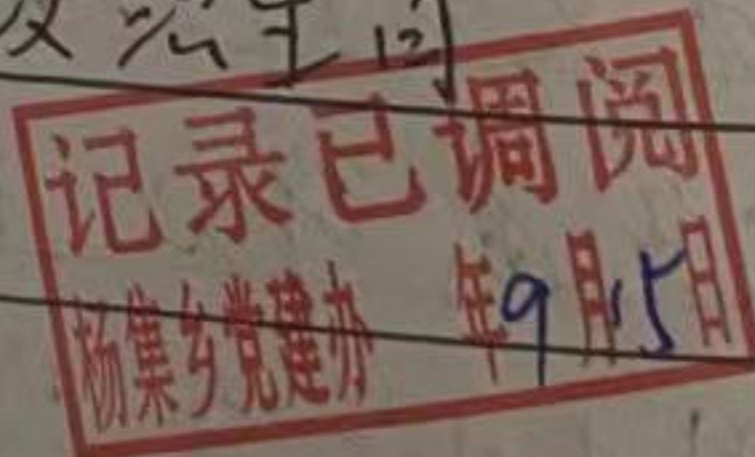 记录已调阅
杨集乡党建办 年9月15日